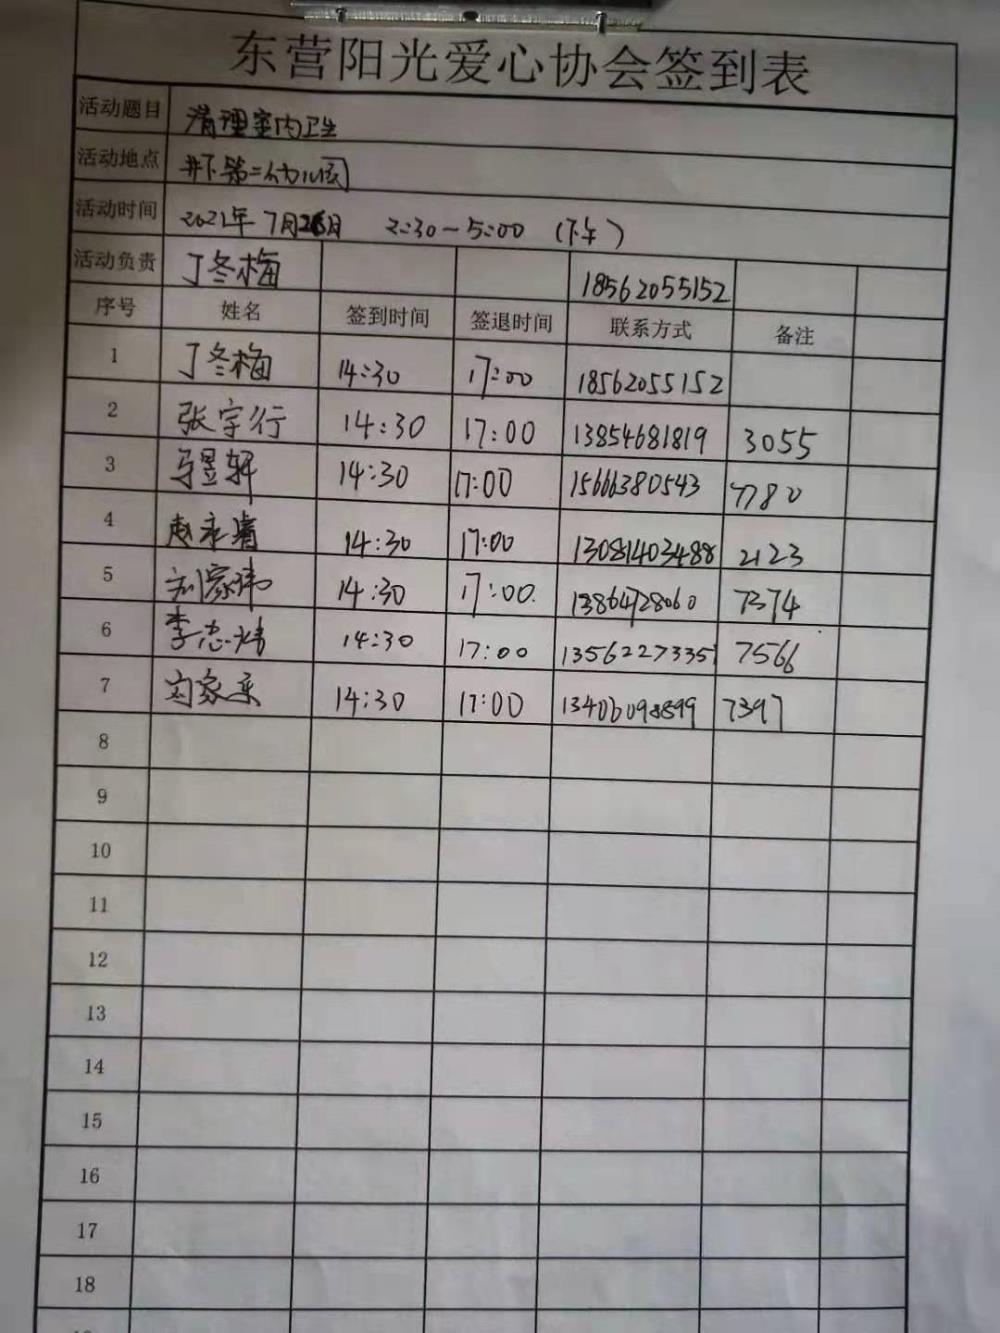 东营阳光爱心协会签到表
活动题目 清理室内卫生
活动地点 井下第二幼儿园
活动时间 2021年7月26日 2:30~5:00 (下午)
活动负责 丁冬梅 18562055152
序号 姓名 签到时间 签退时间 联系方式 备注
1 丁冬梅 14:30 17:00 18562055152
2 张宇行 14:30 17:00 13854681819 3055
3 马昱轩 14:30 17:00 15666380543 7780
4 赵 14:30 17:00 13081403488 2123
5 刘家玮 14:30 17:00. 13864728060 7374
6 李志炜 14:30 17:00 13562273351 7566
7 14:30 17:00 13406098899 7397
8
9
10
11
12
13
14
15
16
17
18